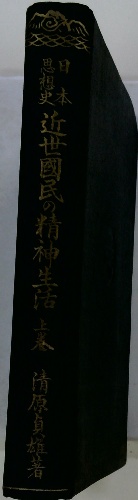 日本
思想史
近世國民の精神生活
上巻
清原貞雄著